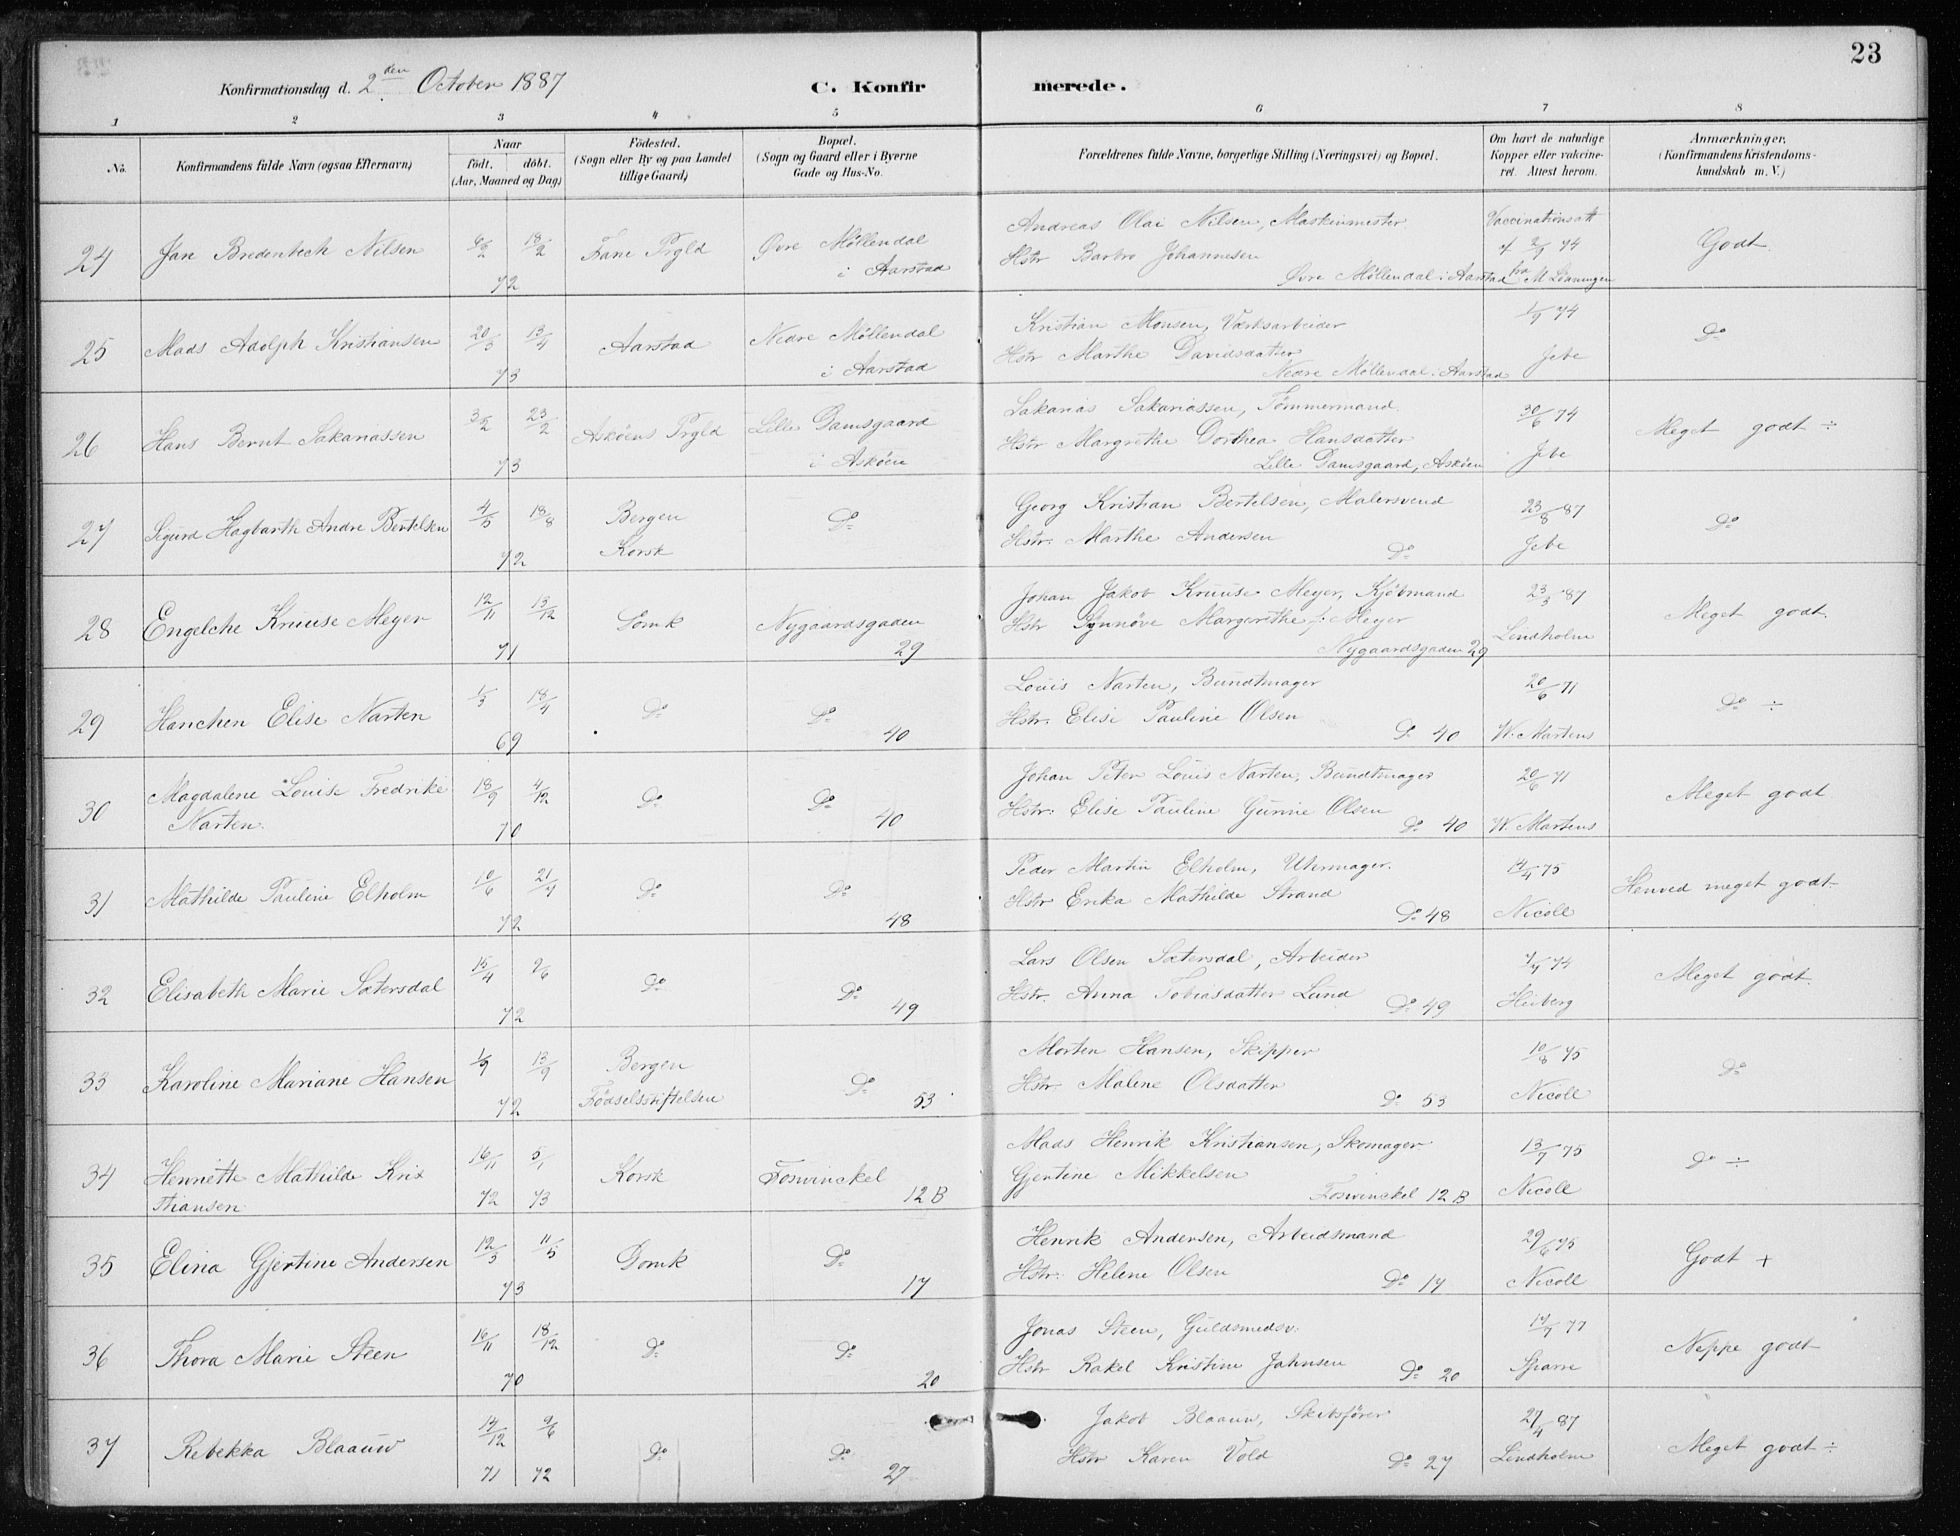 23
Konfirmationsdag d. 2den October 1887
C. Konfirmerede.
1 2 3 4 5 6 7 8
No.
Konfirmandens fulde Navn (ogsaa Efternavn)
Naar
födt. döbt.
(Aar, Maaned og Dag)
Födested.
(Sogn eller By og paa Landet
tillige Gaard)
Bopæl.
(Sogn og Gaard eller i Byerne
Gade og Hus-No.
Forældrenes fulde Navne, borgerlige Stilling (Næringsvei) og Bopæl.
Om havt de naturlige
Kopper eller vakcine-
ret. Attest herom.
Anmærkninger,
(Konfirmandens Kristendoms-
kundskab m. V.)
24 Jan Bredenbech Nilsen 6/2 18/2 72 Fane Prgld Øvre Møllendal
i Aarstad
Andreas Olai Nilsen, Maskinmester
Hstr Barbro Johannesen
Øvre Møllendal i Aarstad
Vaccinationsatt
74
Godt.
25 Mads Adolph Kristiansen 20/3 13/4 73 Aarstad Nedre Møllendal
i Aarstad
Kristian Monsen, Værksarbeider
Hstr Marthe Davidsdatter
Nedre Møllendal i Aarstad
1/9 74
Jebe
Do
26 Hans Bernt Sakariassen 3/2 23/2 73 Askøens Prgld Lille Damsgaard
i Askøen
Sakarias Sakariassen, Tømmermand
Hstr Margrethe Dorthea Hansdatter
Lille Damsgaard, Askøen
30/6 74
Jebe
Meget godt ÷
27 Sigurd Hagbarth Andre Bertelsen 4/5 18/8 72 Bergen
Korsk
Do
Georg Kristian Bertelsen, Malersvend
Hstr. Marthe Andersen
Do
23/8 87
Jebe
Do
28 Engelche Kruuse Meyer 12/11 13/12 71 Domk Nygaardsgaden
29
Johan Jakob Kruuse Meyer, Kjøbmand
Hstr Synnöve Margrethe f: Meyer
Nygaardsgaden 29
23/3 87
Lindholm
Meget godt.
29 Hanchen Elise Narten 1/3 18/4 69 Do Do
40
Louis Narten, Bundtmager
Hstr. Elise Pauline Olsen
Do 40
20/6 71
W. Martens
Do ÷
30 Magdalene Louise Fredrike
Narten.
18/9 4/12 70 Do Do
40
Johan Peter Louis Narten, Bundtmager
Hstr: Elise Pauline Gurine Olsen
Do 40
20/6 71
W. Martens
Meget godt.
31 Mathilde Pauline Elholm 10/6 21/7 72 Do Do
48
Peder Martin Elholm, Uhrmager.
Hstr Erika Mathilde Strand
Do 48
14/4 75
Nicoll
Henved meget godt
32 Elisabeth Marie Sætersdal 15/4 2/6 72 Do Do
49
Lars Olsen Sætersdal, Arbeider
Hstr. Anna Tobiasdatter Lund
Do 49
74
Heiberg
Meget godt.
33 Karoline Mariane Hansen 1/9 13/9 72 Bergen
Fødselsstiftelsen
Do
53
Morten Hansen, Skipper
Hstr. Malene Olsdatter
Do 53
10/8 75
Nicoll
Do
34 Henriette Mathilde Kris
tiansen
16/11 72 5/1 73 Korsk Foswinckel
12 B
Mads Henrik Kristiansen, Skomager
Gjertine Mikkelsen
Foswinckel 12 B
13/7 75
Nicoll
Do ÷
35 Elina Gjertine Andersen 12/3 11/5 73 Domk Do
17
Henrik Andersen, Arbeidsmand
Hstr: Helene Olsen
Do 17
29/6 75
Nicoll
Godt +
36 Thora Marie Steen 16/11 18/12 70 Do Do
20
Jonas Steen, Guldsmedsv:
Hstr Rakel Kristine Jahnsen
Do 20
77
Sparre
Neppe godt
37 Rebekka Blaauw 14/12 71 9/6 72 Do Do
27
Jakob Blaauw, Skibsfører
Hstr Karen Vold
Do 27
27/4 87
Lindholm
Meget godt ÷